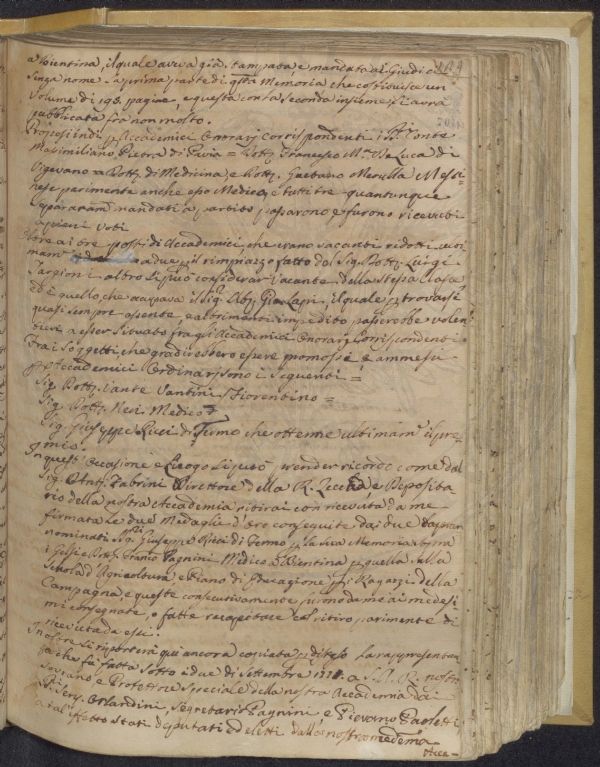 a Bientina, il quale aveva già stampata, e mandata ai Giudici
senza nome la prima parte di qta Memoria che costituisce un
Volume di 198. pagine, e questa con la seconda insieme si avrà
pubblicata fra non molto.
Propostindi p Accademici Onorarj Corrispondenti i SS. Conte
Massimiliano Pietra di Pavia = Dott. Francesco Ma. De Luca di
Vigevano = Dott. di Medicina e Dott. Gaetano Merulla Messi=
nese parimente anche esso Medico, e tutti tre quantunque
separatam mandati a partito passarono e furono ricevuti
a pieni voti
Oltre ai tre posti di Accademici, che erano vacanti ridotti
mam a due, p il rimpiazzo fatto dal Sig. Dott. Luigi
Targioni altro si può considerar vacante della stessa Classe
ed è quello, che occupava il Sig. Ab. Gio. Lapi, il quale p trovarsi
quasi sempre assente, e altrimenti impedito passerebbe volen=
tieri a esser situato fra gli Accademici Onorarj Corrispondenti.
Fra i Soggetti che gradirebbero essere promossi, e ammessi
p Accademici Ordinarj sono i seguenti =
Sig. Dott. Dante Vantini Fiorentino =
Sig. Dott. Neri Medico =
Sig. Giuseppe Ricci di Fermo che ottenne ultimam il pre=
mio.
In questa Occasione e Luogo si può prender ricordo come dal
Sig. Ant. Fabrini Direttore della R. Zecca e Deposita=
rio della nostra Accademia ritirai con ricevuta da me
firmata le due Medaglie d'oro conseguite dai due
nominati Sigri Giuseppe Ricci di Fermo p la sua Memoria sopra
i Gelsi e Dott. Franco Pagnini Medico a Bientina p quella sulla
Scuola d'Agricoltura e Piano di Educazione p i Ragazzi della
Campagna, e queste consecutivamente furono da me ai medesi=
mi consegnate, o fatte recapitare col ritiro parimente di
ricevuta da essi.
Inoltre si riporterà qui ancora copiata p disteso la rappresentan
za che fu fatta sotto i due di Settembre a S. A. R. nostro
Sovrano e Protettore Speciale della nostra Accademia dai
SS. Orlandini, Segretario Pagnini e Pievano Paoletti
a tal' effetto stati deputati ed eletti dalla nostra medema
Acca=